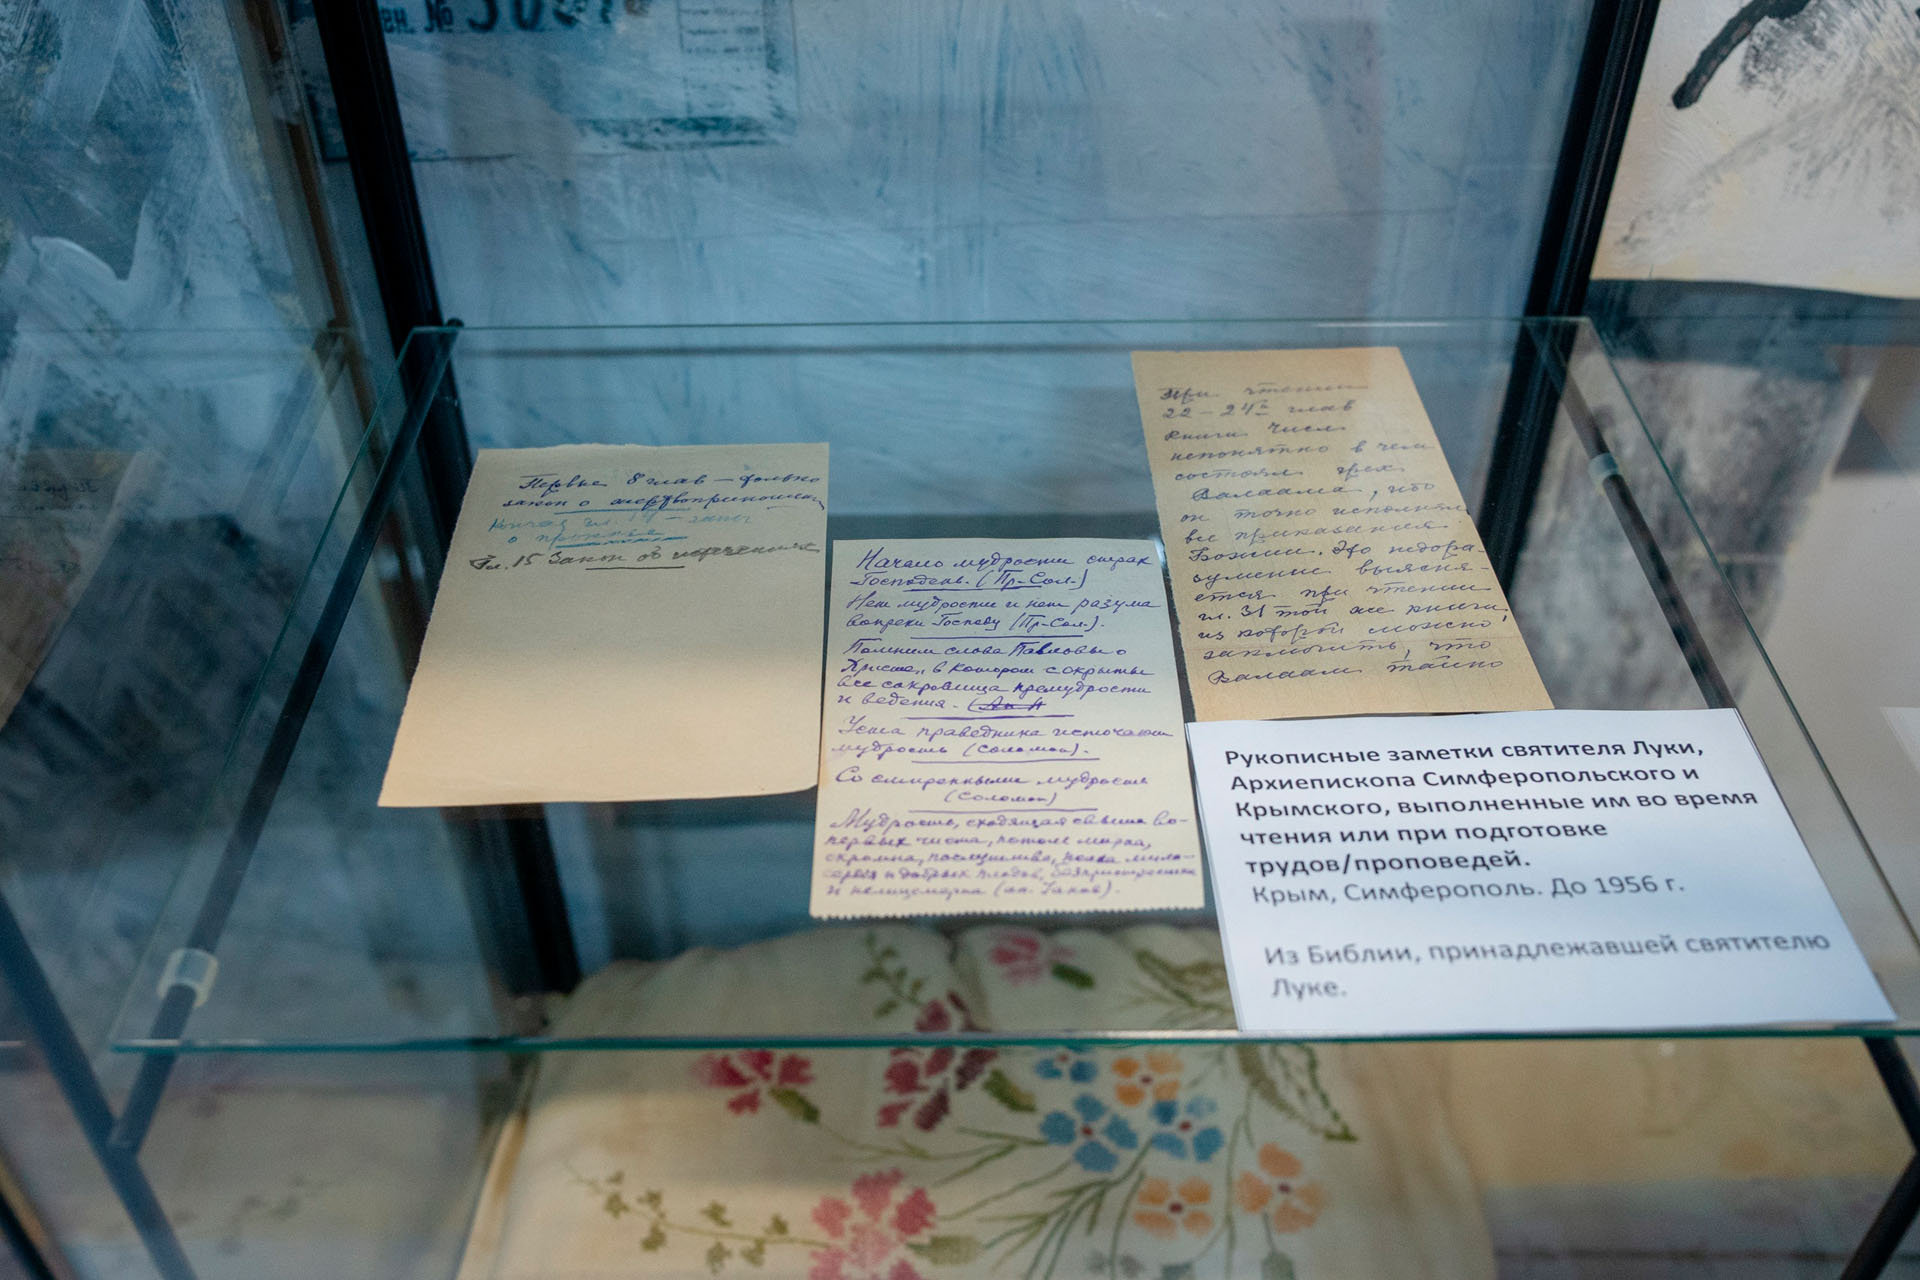 Первые 8 глав – только
закон о жертвоприношениях
Кончая гл. 14 – закон
о проказе
Гл. 15 Закон об истечениях
Начало мудрости страх
Господень. (Пр-Сол.)
Нет мудрости и нет разума
вопреки Господу (Пр-Сол.).
Помним слова Павловы о
Христе, „в котором сокрыты
все сокровища премудрости
и ведения.
Уста праведника источают
мудрость (Соломон).
Со смиренными мудрость
(Соломон)
Мудрость, сходящая свыше во-
первых чиста, потом мирна,
скромна, послушлива, полна мило-
сердия и добрых плодов, беспристрастна
и нелицемерна (ап. Иаков).
При чтении
22 – 24й глав
книги Числ
непонятно в чем
состоял грех
Валаама, ибо
он точно исполнял
все приказания
Божии. Это недора-
зумение выясня-
ется при чтении
гл. 31 той же книги,
из которой можно
заключить, что
Валаам тайно
Рукописные заметки святителя Луки,
Архиепископа Симферопольского и
Крымского, выполненные им во время
чтения или при подготовке
трудов/проповедей.
Крым, Симферополь. До 1956 г.
Из Библии, принадлежавшей святителю
Луке.